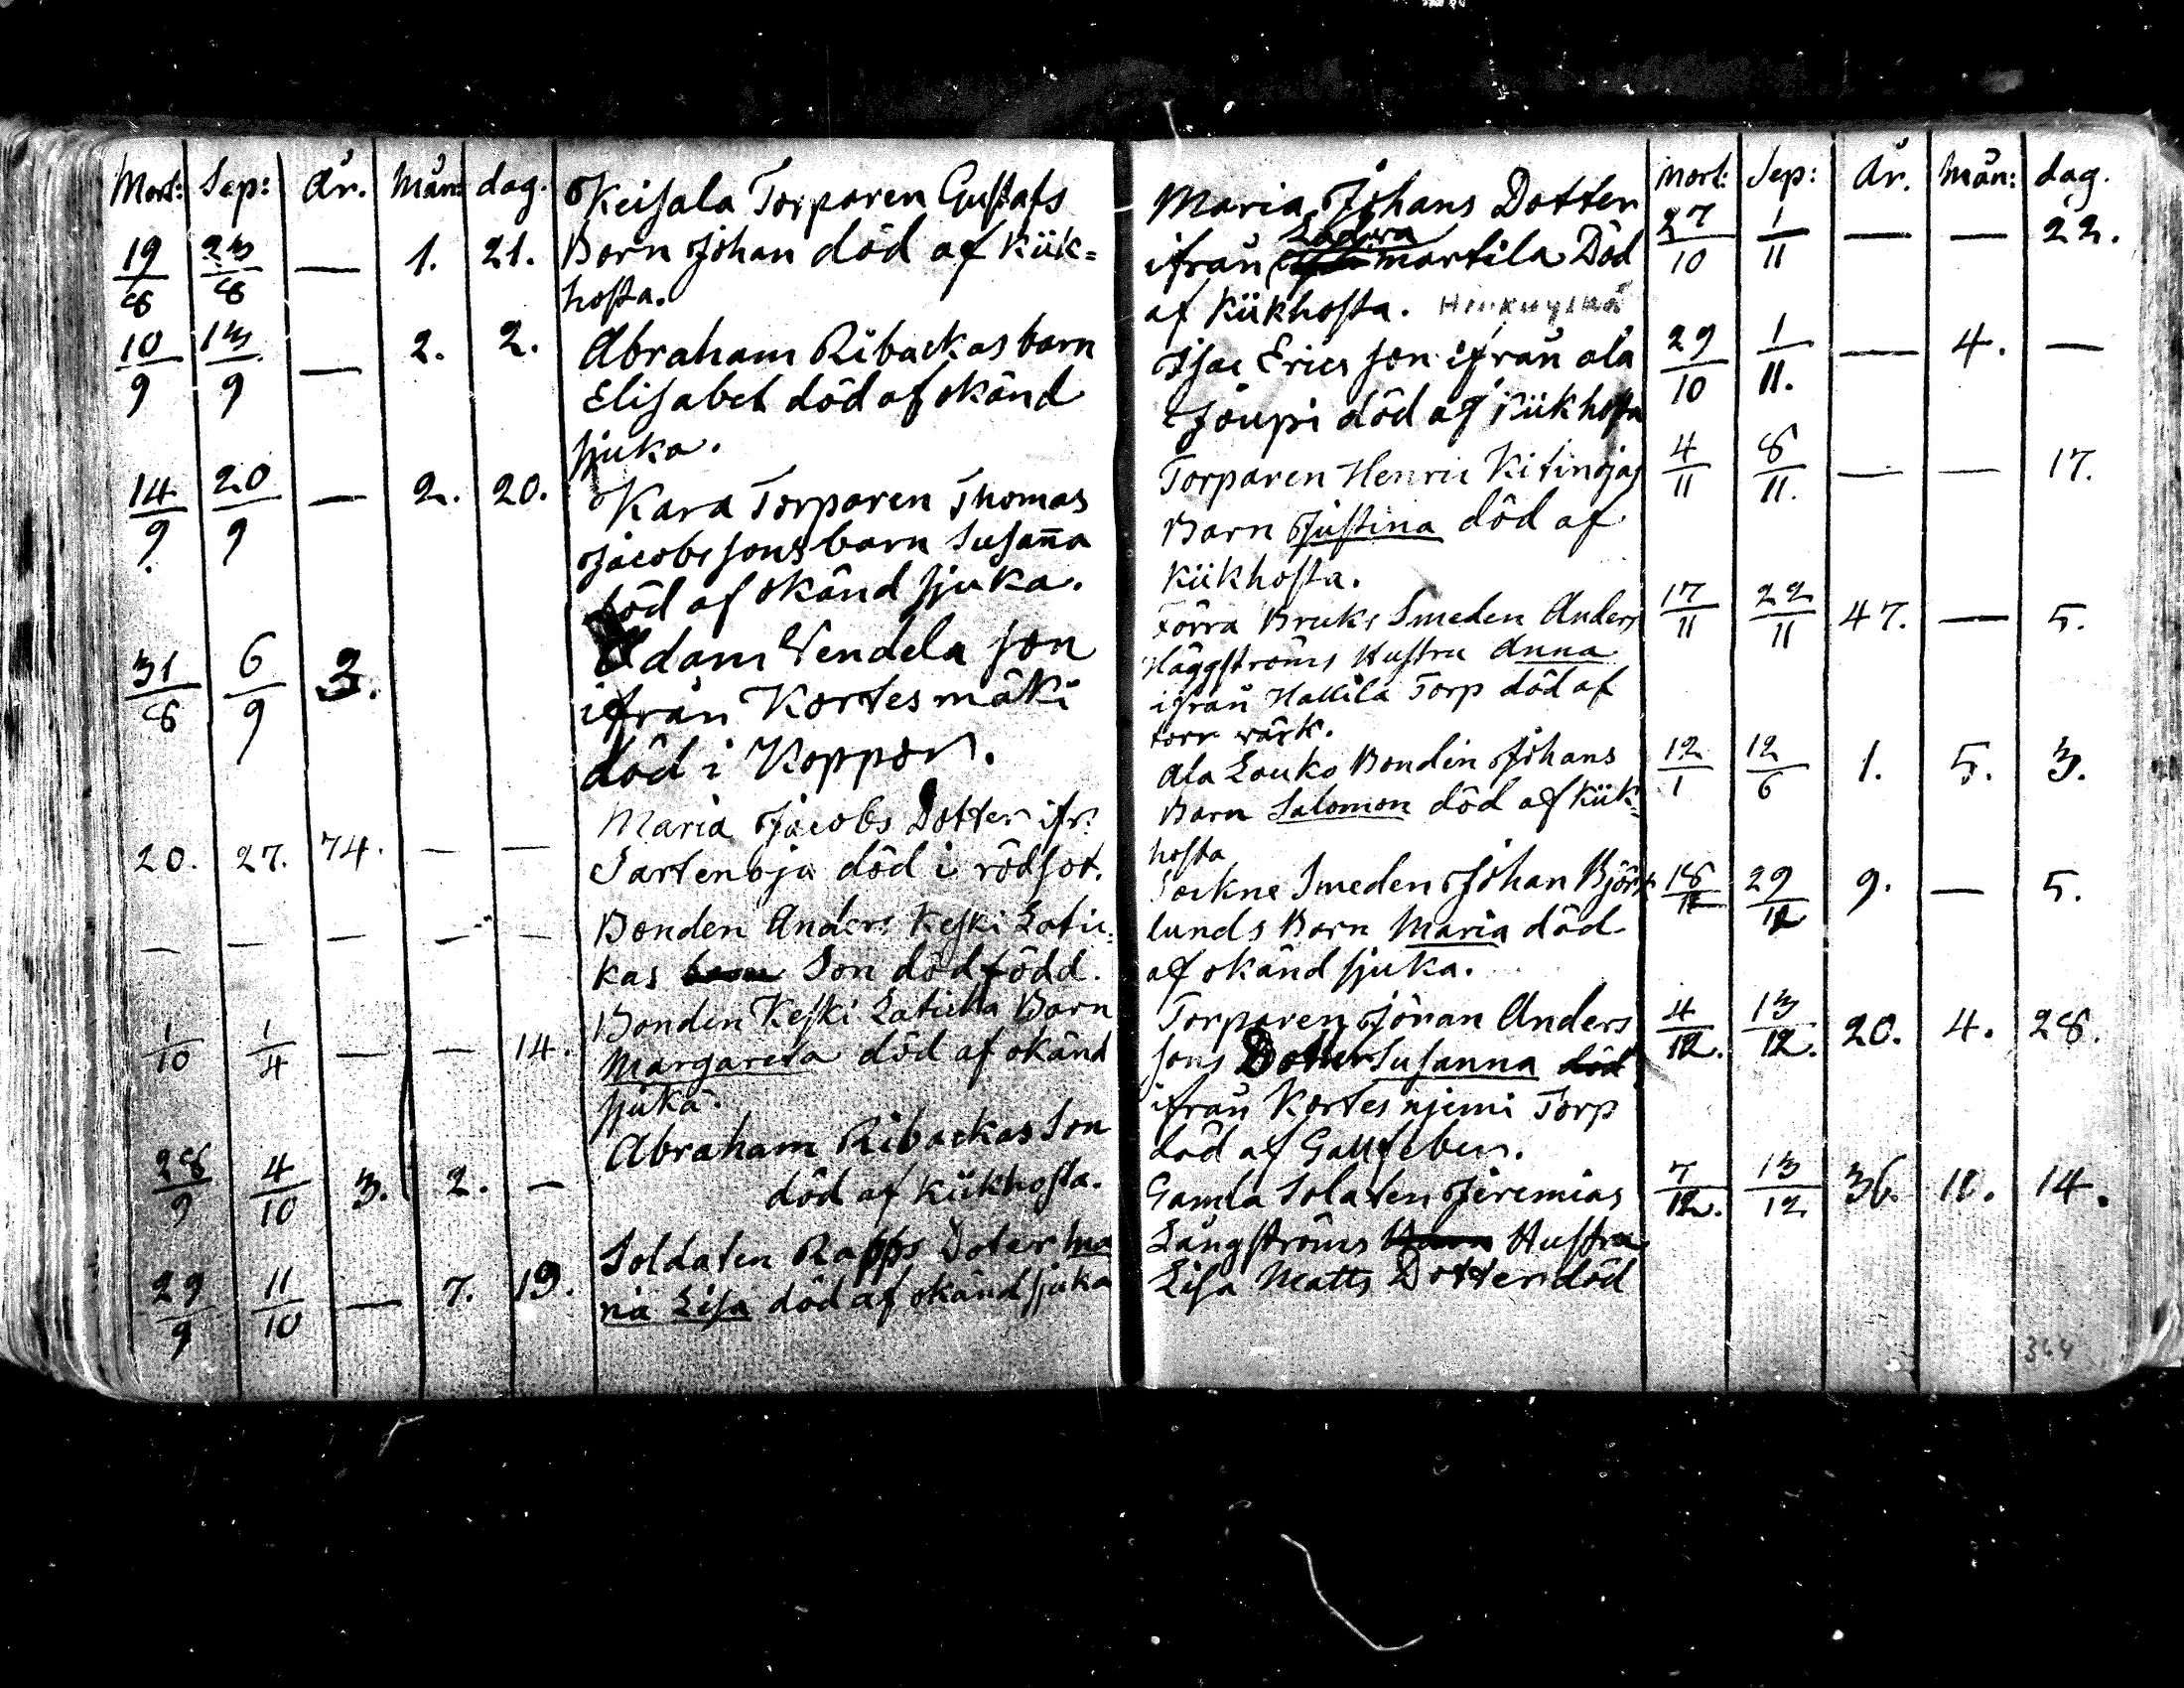 Mort: Sep: År. Mån: dag.
Keisala Torparen Gustafs
19/8 23/8 — 1. 21. Barn Johan död af Kiik=
hosta.
10/9 13/9 — 2. 2. Abraham Ribackas barn
Elisabet död af okänd
sjuka.
14/9 20/9 — 2. 20. Kara Torparen Thomas
Jacobssons barn Susaña
död af okänd sjuka.
31/8 6/9 3. Adam Vendela son
ifrån Kortesmäki
död i Koppor.
Maria Jacobs Dotter ifr:
20. 27. 74. — — Sartenoja död i rödsot.
— — — — — Bonden Anders Keski
kas Son dödfödd.
1/10 1/4 — — 14. Bonden Keski Barn
Margareta död af okänd
sjuka.
28/9 4/10 3. 2. — Abraham Ribackas Son
död af Kiikhosta.
29/9 11/10 — 7. 19. Soldaten Rapps Doter Ma
ria Lisa död af okänd sjuka
Mort: Sep: År. Mån: dag.
Maria Johans Dotter 27/10 1/11 — — 22.
ifrån martila Död
af Kiikhosta.
Isac Erics son ifrån ala 29/10 1/11. — 4. —
Joupi död af Kiikhosta
Torparen Henric Kitinojas 4/11 8/11. — — 17.
Barn Justina död af
Kiikhosta.
Förra Bruks Smeden Anders 17/11 22/11 47. — 5.
Häggströms Hustru Anna
ifrån Hallila Torp död af
torr värk.
Ala Louko Bonden Johans 12/1 12/6 1. 5. 3.
Barn Salomon död af Kiik=
hosta
Sockne Smeden Johan Björk 18/12 29/12 9. — 5.
lunds Barn Maria död
af okänd sjuka.
Torparen Jöran Anders 4/12. 13/12. 20. 4. 28.
sons Dotter Susanna död
ifrån Kortesnjemi Torp
död af Gallfeber.
Gamla Solaten Jeremias 7/12. 13/12 36. 10. 14.
Långströms Barn Hustru
Lisa Matts Dotter död